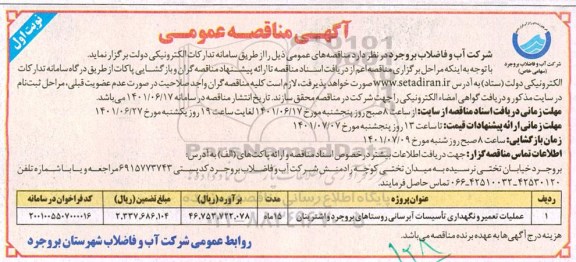 آگهی مناقصه عمومی
نوبت اول
شرکت آب و فاضلاب بروجرد
(سهامی خاص)
شرکت آب و فاضلاب بروجرد در نظر دارد مناقصه‌های عمومی ذیل را از طریق سامانه تدارکات الکترونیکی دولت برگزار نماید.
با توجه به اینکه مراحل برگزاری مناقصه اعم از دریافت اسناد مناقصه تا ارائه پیشنهاد مناقصه گران و بازگشایی پاکات از طریق درگاه سامانه تدارکات
الکترونیکی دولت (ستاد) به آدرس www.setadiran.ir صورت خواهد پذیرفت، لازم است کلیه مناقصه گران واجد صلاحیت در صورت عدم عضویت قبلی، مراحل ثبت‌نام
در سایت مذکور و دریافت گواهی امضاء الکترونیکی را جهت شرکت در مناقصه محقق سازند. تاریخ انتشار مناقصه در سامانه ۱۴۰۱/۰۶/۱۷ می‌باشد.
مهلت زمانی دریافت اسناد مناقصه از سایت: از ساعت ۸ صبح روز پنجشنبه مورخ ۱۴۰۱/۰۶/۱۷ لغایت ساعت ۱۹ روز یکشنبه مورخ ۱۴۰۱/۰۶/۲۷
مهلت زمانی ارائه پیشنهادات قیمت: تا ساعت ۱۳ روز پنجشنبه مورخ ۱۴۰۱/۰۷/۰۷
زمان بازگشایی: ساعت ۸ صبح روز شنبه مورخ ۱۴۰۱/۰۷/۰۹
اطلاعات تماس مناقصه گزار: جهت دریافت اطلاعات بیشتر در خصوص اسناد مناقصه و ارائه پاکت‌های (الف) به آدرس:
بروجرد خیابان تختی نرسیده به میدان تختی کوچه رادمنش شرکت آب و فاضلاب بروجرد کدپستی ۶۹۱۵۷۷۳۷۴۳ مراجعه و یا با شماره تلفن
۴۲۵۳۰۱۲۰-۴۲۵۱۰۰۳۲-۰۶۶ تماس حاصل فرمایند.
ردیف عنوان پروژه مدت برآورد (ریال) مبلغ تضمین (ریال) کد فراخوان در سامانه
۱ عملیات تعمیر و نگهداری تأسیسات آبرسانی روستاهای بروجرد و اشترینان ۱۵ ماه ۴۶،۷۵۳،۷۲۲،۰۷۸ ۲،۳۳۷،۶۸۶،۱۰۴ ۲۰۰۱۰۰۵۵۰۷۰۰۰۰۱۶
هزینه درج آگهی‌ها به عهده برنده مناقصه می‌باشد.
روابط عمومی شرکت آب و فاضلاب شهرستان بروجرد